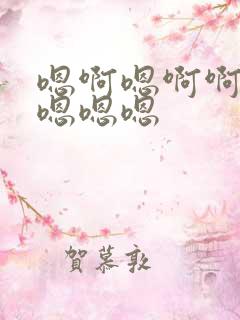 嗯啊嗯啊啊
嗯嗯嗯
賀慕敦